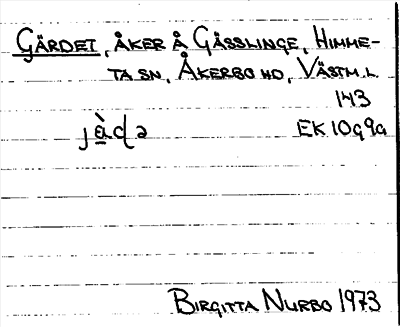 GÄRDET, ÅKER Å GÄSSLINGE, HIMME-
TA SN, ÅKERBO HD, VÄSTM. L
143
jæ̀ɖə EK 10g9a
BIRGITTA NURBO 1973